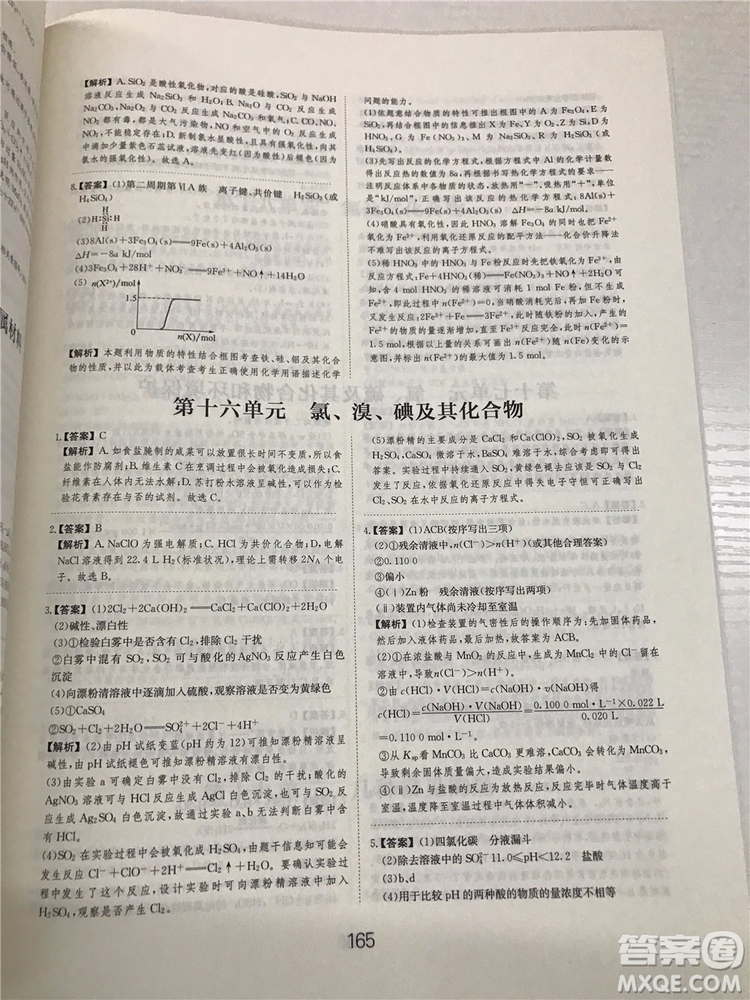 【解析】A. SiO₂ 是酸性氧化物,对应的酸是硅酸,SiO₂ 与 NaOH
溶液反应生成 Na₂SiO₃ 和 H₂O;B. Na₂O 与 CO₂ 反应生成
Na₂CO₃,Na₂O₂ 与 CO₂ 反应生成 Na₂CO₃ 和 O₂;C. CO、NO、
NO₂ 都有毒,都是大气污染物,NO 和空气中的 O₂ 反应生成
NO₂,能稳定存在于空气中;D. 新制氯水具有强氧化性,向其
中滴加少量紫色石蕊试液,溶液先变红(因为盐酸)后褪色(因
氯水的强氧化性)。故选 A。
8.【答案】(1)第二周期第ⅥA族 离子键、共价键 H₂SiO₃(或
H₄SiO₄)
H
(2)H—Si—H
H
(3)8Al(s)+3Fe₃O₄(s)══9Fe(s)+4Al₂O₃(s)
ΔH=−8a kJ/mol
(4)3Fe₃O₄+28H⁺+NO₃⁻══9Fe³⁺+NO↑+14H₂O
(5) n(X²⁺)/mol
1.5
n(X)/mol
【解析】本题利用物质的特性结合框图考查铁、硅、铝及其化合
物的性质,并以此为载体考查考生正确使用化学用语描述化学
问题的能力。
(1)依题意结合物质的特性可推出框图中的 A 为 Fe₃O₄,E 为
SiO₂,再结合框图中的信息推出 X 为 Fe,Y 为 O₂,Z 为 Si,D 为
HNO₃,G 为 Fe(NO₃)₃,W 为 Na₂SiO₃,R 为 H₂SiO₃(或
H₄SiO₄)。
(3)先写出反应的化学方程式,根据化学方程式中 Al 的计量数得
出对应的热量的数值为 8a,再按照热化学方程式的要求——
注明反应体系中各物质的状态,放热用“−”,吸热用“+”,单
位为 kJ/mol,正确写出该反应的热化学方程式:8Al(s)
+3Fe₃O₄(s)══9Fe(s)+4Al₂O₃(s) ΔH=−8a kJ/mol。
(4)考虑过量 HNO₃ 溶解 Fe₃O₄ 的同时也把 Fe²⁺ 氧化成
Fe³⁺,利用氧化还原反应的配平方法——化合价升降法
不难写出该反应的离子方程式。
(5)稀 HNO₃ 中逐渐加入 Fe 粉至过量时反应先把铁氧化成
Fe³⁺,过量的 Fe 再把 Fe³⁺ 还原为 Fe²⁺。依题给条件可
知,含 4 mol HNO₃ 的稀溶液可溶解 1 mol Fe,生成 1 mol
Fe³⁺,当硝酸消耗完时再加入 Fe 粉时,Fe³⁺ 开始生成
Fe²⁺,溶液中 n(Fe²⁺)逐渐增大,当加入 1.5 mol 铁粉时溶液中
Fe³⁺ 刚好全部转化为 Fe²⁺,此时溶液中 n(Fe²⁺)的最大值为
1.5 mol。
第十六单元 氯、溴、碘及其化合物
1.【答案】C
【解析】A. 如食盐腌制的咸菜可以放置很长时间不变质,所以食
盐能作防腐剂;B. 维生素 C 在烹调过程中会被氧化而损失;C.
纤维素在人体内无法水解;D. 苏打粉水溶液呈碱性,可以作为检
验花青素存在与否的试剂。故选 C。
2.【答案】B
【解析】A. NaClO 为强电解质;C. HCl 为共价化合物;D. 电解
NaCl 溶液得到 22.4 L H₂(标准状况),理论上需转移 2N_A 个电
子。故选 B。
3.【答案】(1)2Cl₂+2Ca(OH)₂══CaCl₂+Ca(ClO)₂+2H₂O
(2)碱性、漂白性
(3)①检验白雾中是否含有 Cl₂,排除 Cl₂ 干扰
②白雾中混有 SO₂,SO₂ 可与酸化的 AgNO₃ 反应产生白色
沉淀
(4)向漂粉精清溶液中逐滴加入硫酸,观察溶液是否变为黄绿色
(5)①CaSO₄
②SO₂+Cl₂+2H₂O══SO₄²⁻+2Cl⁻+4H⁺
【解析】(2)由 pH 试纸变蓝(pH 约为 12)可推知漂粉精溶液呈碱
性,由 pH 试纸褪色可推知漂粉精溶液具有漂白性。
(3)由实验 a 可确定白雾中不含有 Cl₂,但由于混有 SO₂,酸化的
AgNO₃ 溶液可与 HCl 反应生成 AgCl 白色沉淀,也可与 SO₂ 反
应生成白色沉淀,故由实验 a、b 无法判断白雾中含有 HCl。
(4)SO₂ 在实验过程中会被氧化成 H₂SO₄,由题干信息可能会
发生反应 Cl⁻+ClO⁻+2H⁺══Cl₂↑+H₂O。要确认实验过程
中发生了这个反应,设计实验时可向漂粉精溶液中逐滴加入
H₂SO₄,观察是否有 Cl₂ 产生。
(5)漂粉精的主要成分是 CaCl₂ 和 Ca(ClO)₂,SO₂ 被氧化生成
H₂SO₄,CaSO₄ 微溶于水,BaSO₄ 难溶于水,综合考虑可推出
CaSO₄ 的存在。实验过程中持续通入 SO₂,黄绿色褪去应该是
Cl₂ 与 SO₂ 反应的结果,依据氧化还原反应中得失电子守恒可正
确写出 Cl₂、SO₂ 在水中反应的离子方程式。
4.【答案】(1)ACB(按序写出三项)
(2)①残余清液中,n(Cl⁻)>n(H⁺)(或其他合理答案)
②0.110 0
③偏小
④(ⅰ)Zn 粉 残余清液(按序写出两项)
(ⅱ)装置内气体尚未冷却至室温
【解析】(1)检查装置的气密性后的操作顺序为:先加固体药品,
然后加入液体药品,最后加热,故答案为 ACB。
(2)①在浓盐酸与 MnO₂ 的反应中,反应后残余清液中 n(Cl⁻)
>n(H⁺)。
②由 c(HCl)·V(HCl)=c(NaOH)·V(NaOH)得
c(HCl)=c(NaOH)·V(NaOH)/V(HCl)=0.100 0 mol·L⁻¹×0.022 L/0.020 L
=0.110 0 mol·L⁻¹。
③从 Ksp看 MnCO₃ 比 CaCO₃ 更难溶,CaCO₃ 会转化为 MnCO₃,
导致剩余固体因质量偏小,造成实验结果偏小。
④Zn 与盐酸的反应为放热反应,反应完毕时气体温度高于
室温,冷却至室温过程中气体体积减小。
5.【答案】(1)四氯化碳 分液漏斗
(2)除去溶液中的 SO₄²⁻ 11.0≤pH≤12.2 盐酸
(3)b、d
(4)用于比较 pH 的两种酸的物质的量浓度不相等
165
答案圈
MXQE.COM